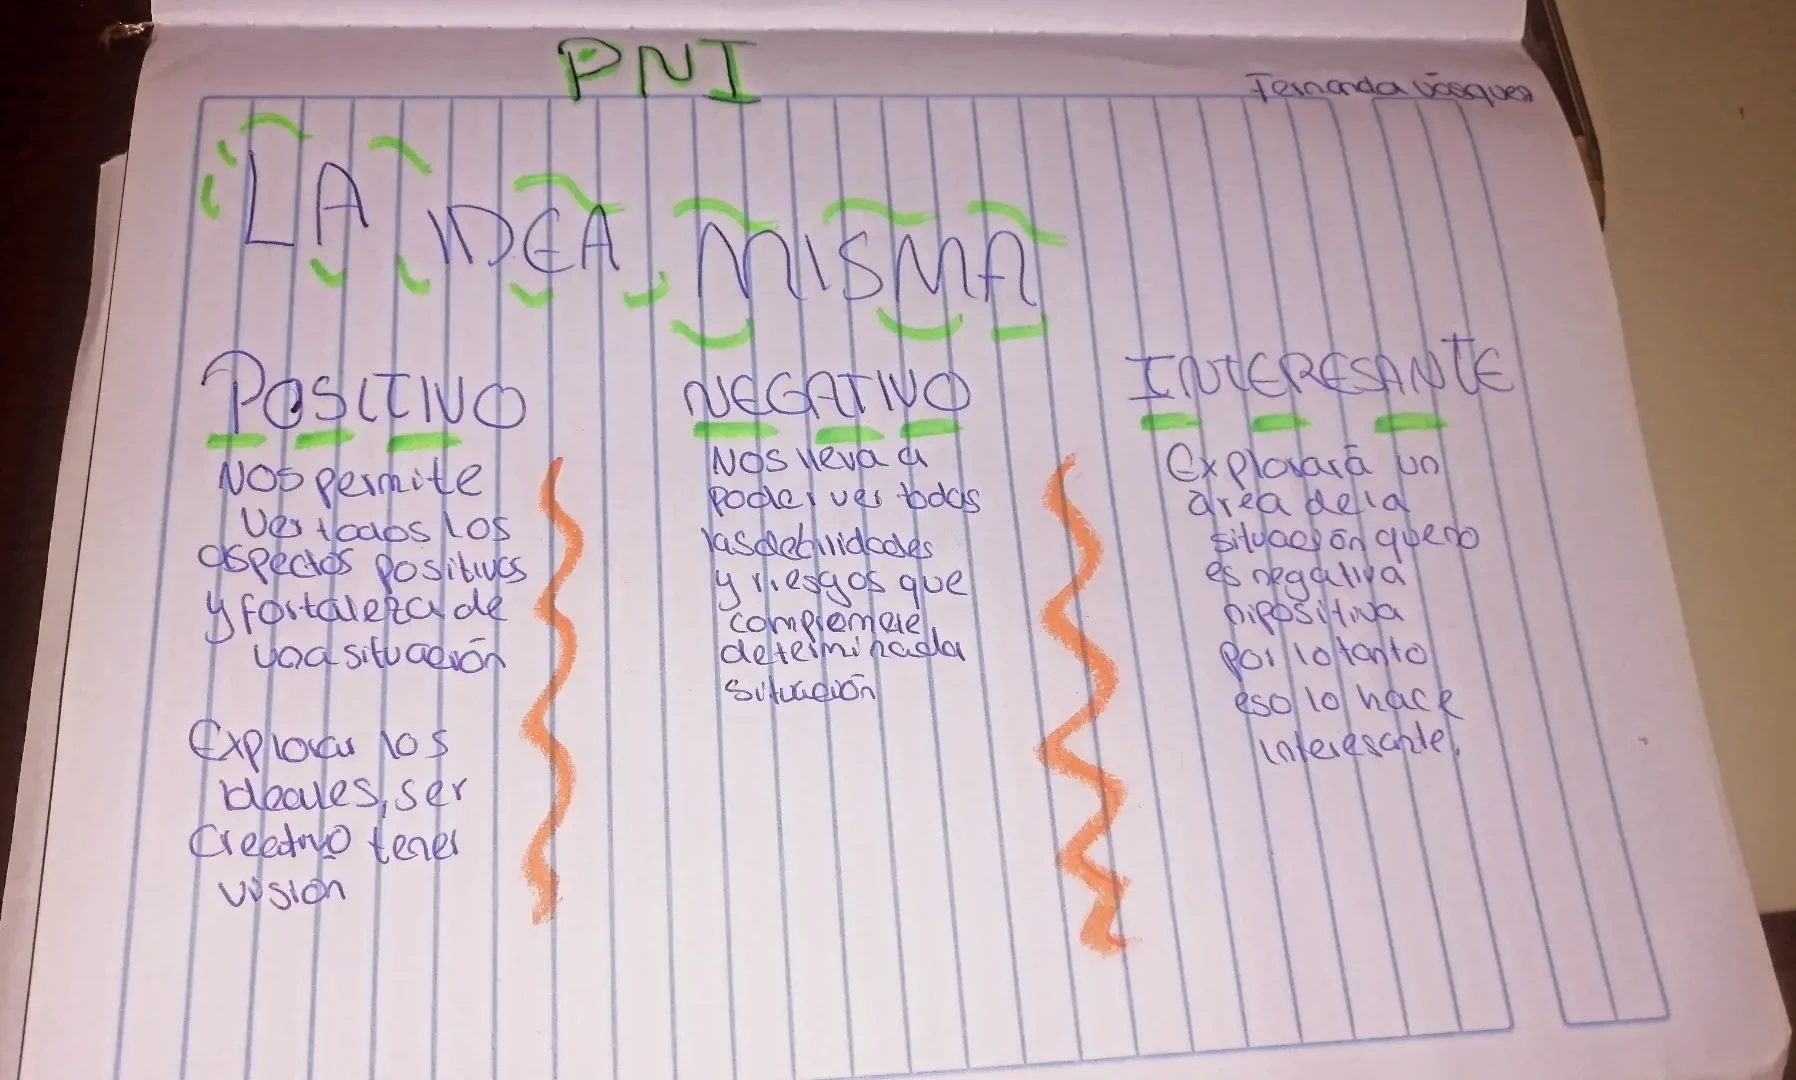 PNI
Fernanda Vásquez
LA IDEA MISMA
POSITIVO
Nos permite
ver todos los
aspectos positivos
y fortaleza de
una situación
Explorar los
ideales, ser
Creativo tener
visión
NEGATIVO
Nos lleva a
poder ver todas
las debilidades
y riesgos que
determinada
situación
INTERESANTE
Explorará un
área de la
situación que no
es negativa
ni positiva
por lo tanto
eso lo hace
interesante.